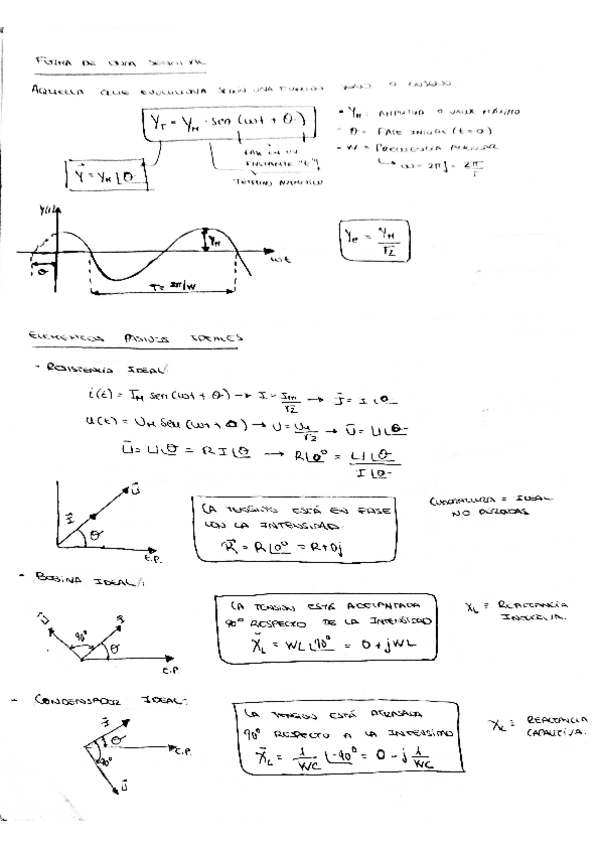 FORMA DE ONDA SENOIDAL
AQUELLA QUE EVOLUCIONA SEGÚN UNA FUNCION SENO O COSENO
Y_T = Y_M · sen (wt + θ)
FASE EN UN INSTANTE "t"
TÉRMINO NUMÉRICO
Y⃗ = Y_M ∠θ
• Y_M = AMPLITUD O VALOR MÁXIMO
- θ = FASE INICIAL (t=0)
- W = FRECUENCIA ANGULAR
↳ ω = 2πf = 2π/T
Y(t)
Y_M
wt
θ
T = 2π/W
Y_e = Y_M/√2
ELEMENTOS PASIVOS IDEALES
- RESISTENCIA IDEAL:
i(t) = I_M sen (wt + θ) → I = I_M/√2 → I⃗ = I ∠θ
u(t) = U_M sen (wt + θ) → U = U_M/√2 → U⃗ = U ∠θ
U⃗ = U ∠θ = R I ∠θ → R ∠0° = U ∠θ / I ∠θ
U⃗
I⃗
θ
E.P.
LA TENSIÓN ESTÁ EN FASE
CON LA INTENSIDAD.
R⃗ = R ∠0° = R + 0j
CUADRATURA = IDEAL
- BOBINA IDEAL:
U⃗
I⃗
90°
θ
E.P.
LA TENSION ESTÁ ADELANTADA
90° RESPECTO DE LA INTENSIDAD
X⃗_L = WL ∠90° = 0 + jWL
X_L = REACTANCIA
INDUCTIVA.
- CONDENSADOR IDEAL:
I⃗
θ
E.P.
90°
U⃗
LA TENSION ESTÁ ATRASADA
90° RESPECTO A LA INTENSIDAD
X⃗_L = 1/WC ∠-90° = 0 - j 1/WC
X_C = REACTANCIA
CAPACITIVA.